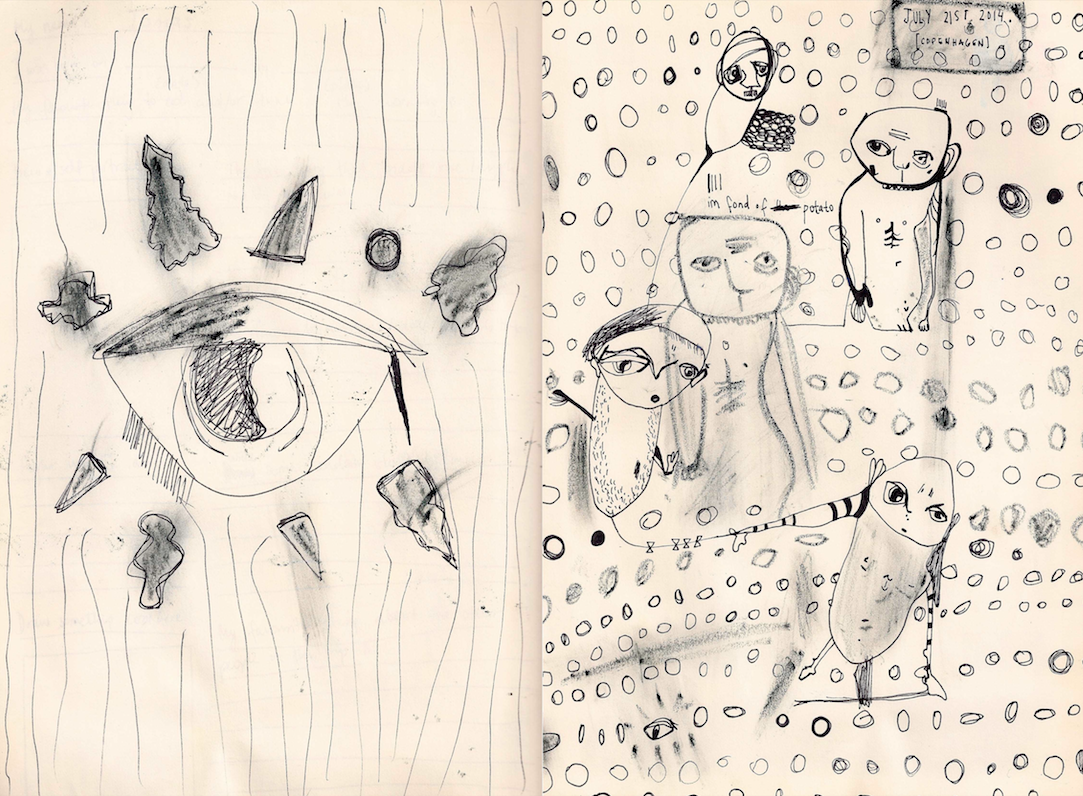 JULY 21ST, 2014.
[COPENHAGEN]
im fond of the potato